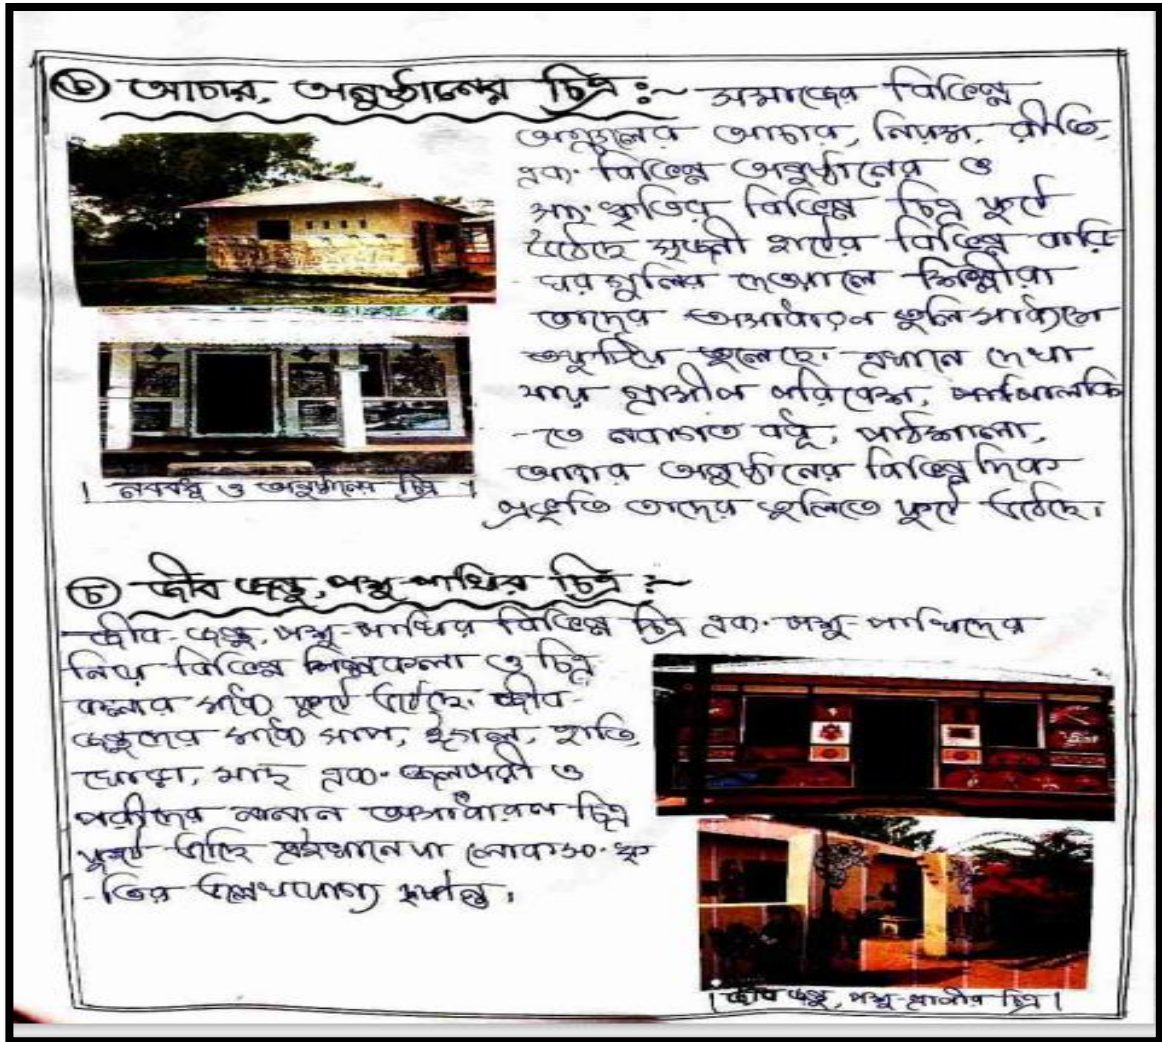 ৬ আচার, অনুষ্ঠানের চিত্র :~ সমাজের বিভিন্ন
অঞ্চলের আচার, নিয়ম, রীতি,
এবং বিভিন্ন অনুষ্ঠানের ও
সংস্কৃতির বিভিন্ন চিত্র ফুটে
উঠেছে সৃজনী হাটের বিভিন্ন বাড়ি
ঘরগুলির দেওয়ালে শিল্পীরা
তাদের অসাধারণ তুলি মাধ্যমে
তুলেছে। এখানে দেখা
যায় গ্রামীণ পরিবেশ, পালকি
-তে নবাগত বধূ, পাঠশালা,
আচার অনুষ্ঠানের বিভিন্ন দিক
প্রভৃতি তাদের তুলিতে ফুটে উঠেছে।
। নববধূ ও অনুষ্ঠানের চিত্র ।
চ জীব জন্তু, পশু-পাখির চিত্র :~
জীব-জন্তু, পশু-পাখির বিভিন্ন চিত্র এবং পশু-পাখিদের
নিয়ে বিভিন্ন শিল্পকলা ও চিত্র
কলার মধ্যে ফুটে উঠেছে। জীব-
জন্তুদের মধ্যে সাপ, ঈগল, হাতি,
ঘোড়া, মাছ এবং জলপরী ও
পরীদের নানান অসাধারণ চিত্র
ফুটে উঠেছে এইখানে যা লোকসংস্কৃ
-তির উল্লেখযোগ্য দৃষ্টান্ত।
। জীব জন্তু, পশু-প্রাণীর চিত্র ।